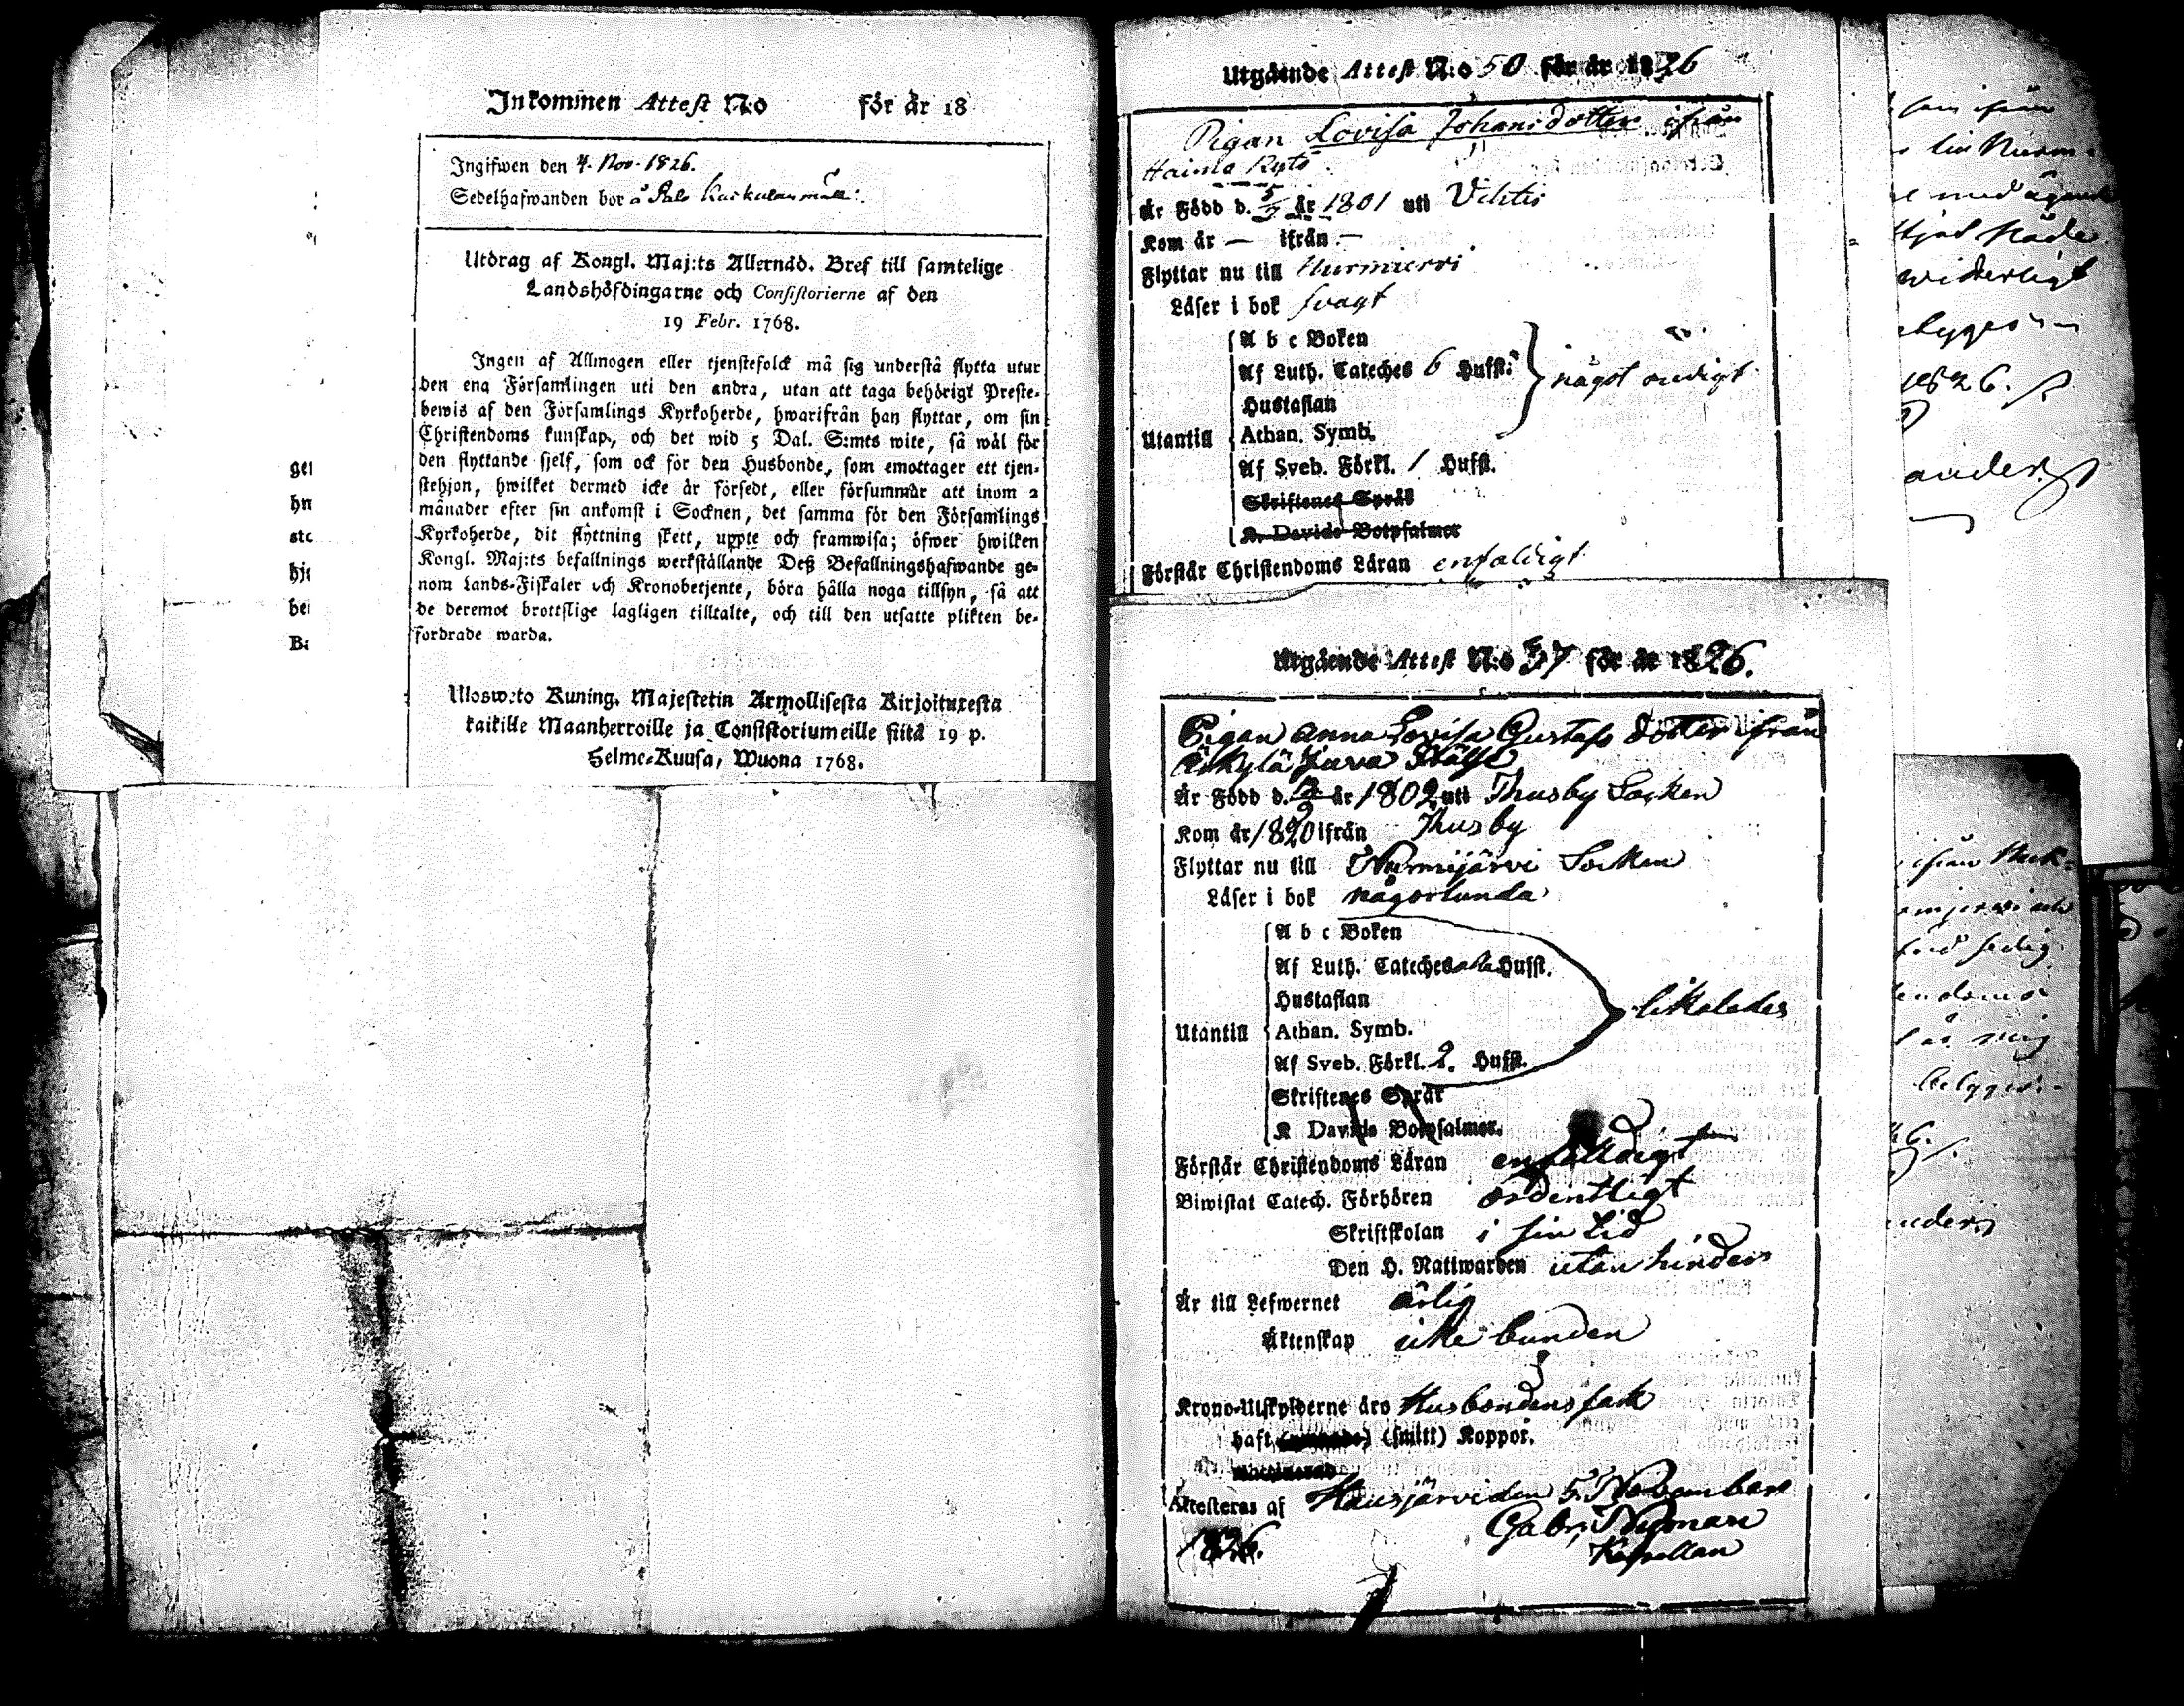 Inkommen Attest N:o för år 18
Ingifwen den 4. Nov. 1826.
Sedelhafwanden bor å
Utdrag af Kongl. Maj:ts Allernåd. Bref till samtelige
Landshöfdingarne och Consistorierne af den
19 Febr. 1768.
Ingen af Allmogen eller tjenstefolck må sig understå flytta utur
den ena Församlingen uti den andra, utan att taga behörigt Preste-
bewis af den Församlings Kyrkoherde, hwarifrån han flyttar, om sin
Christendoms kunskap, och det wid 5 Dal. S:mts wite, så wäl för
den flyttande sjelf, som ock för den Husbonde, som emottager ett tjen-
stehjon, hwilket dermed icke är försedt, eller försummar att inom 2
månader efter sin ankomst i Socknen, det samma för den Församlings
Kyrkoherde, dit flyttning skett, uppte och framwisa; öfwer hwilken
Kongl. Maj:ts befallnings werkställande Deß Befallningshafwande ge-
nom Lands-Fiskaler och Kronobetjente, böra hålla noga tillsyn, så att
de deremot brottslige lagligen tilltalte, och till den utsatte plikten be-
fordrade warda.
Ulosweto Kuning. Majestetin Armollisesta Kirjoituxesta
kaikille Maanherroille ja Consistoriumeille siitä 19 p.
Helme-Kuusa, Wuona 1768.
gei
hn
stc
hji
bei
Ba
Utgående Attest N:o 50 för år 1826
Pigan Lovisa Johansdotter ifrån
Haimo Kytö
Är Född d. 5/7 år 1801 uti Vichtis
Kom år — ifrån —
Flyttar nu till Nurmiervi
Läser i bok svagt
A b c Boken
Af Luth. Cateches 6 Hufst.
Hustaflan
något redigt
Utantill Athan. Symb.
Af Sveb. Förkl. 1 Hufst.
Skriftenes Språk
K. Davids Botpsalmer
Förstår Christendoms Läran enfaldigt
Utgående Attest N:o 37 för år 1826.
Pigan Anna Lovisa Gustafs dotter ifrån
Juva
Är Född d. år 1802 uti Thusby Socken
Kom år 1820 ifrån Thusby
Flyttar nu till Nurmijärvi Socken
Läser i bok någorlunda
A b c Boken
Af Luth. Cateches alla Hufst.
Hustaflan
likaledes
Utantill Athan. Symb.
Af Sveb. Förkl. 2. Hufst.
Skriftenes Språk
K Davids Botpsalmer.
Förstår Christendoms Läran enfaldigt
Biwistat Catech. Förhören ordentligt
Skriftskolan i sin tid
Den H. Nattwarden utan hinder
Är till Lefwernet ärlig
Äktenskap icke bunden
Krono-Utskylderne äro Husbondens sak
haft (smitt) Koppor.
Attesteras af Hausjärvi den 5. November
1826.
Gabr. Nyman
Kapellan
ifrån
med
1826.
ifrån
sedig
mig